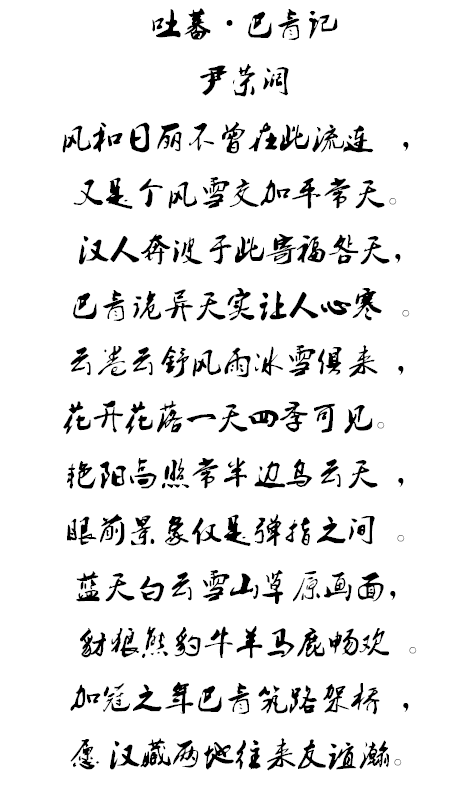 吐蕃·巴青记
尹荣润
风和日丽不曾在此流连，
又是个风雪交加平常天。
汉人奔波于此寄福咎天，
巴青诡异天实让人心寒。
云卷云舒风雨冰雪俱来，
花开花落一天四季可见。
艳阳高照常半边乌云天，
眼前景象仅是弹指之间。
蓝天白云雪山草原画面，
豺狼熊豹牛羊马鹿畅欢。
加冠之年巴青筑路架桥，
愿汉藏两地往来友谊瀚。